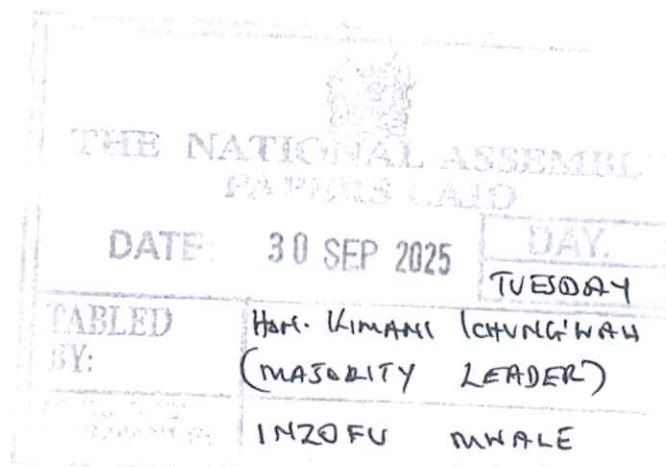 THE NATIONAL ASSEMBLY
PAPERS LAID
DATE: 30 SEP 2025 DAY.
TUESDAY
TABLED BY: Hon. Kimani Ichung'wah
(MAJORITY LEADER)
INZOFU MWALE